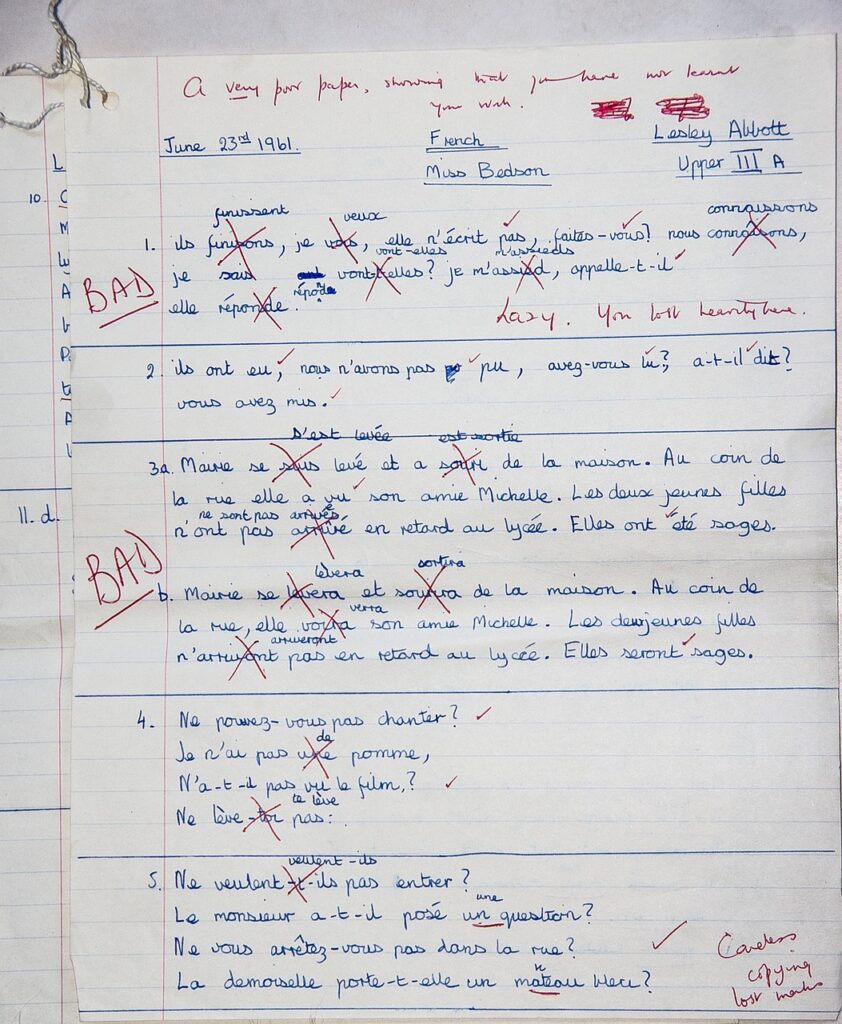 A very poor paper, showing that you have not learnt
your work.
June 23rd 1961.
French
Lesley Abbott
Miss Bedson
Upper III A
L
10.
finissent veux connaissons
1. ils finisons, je vois, elle n'écrit pas, faites-vous? nous connaisons,
vont-elles m'assieds
je sais vont-t-elles? je m'assied, appelle-t-il
BAD
réponde
elle réponde.
Lazy. You lost heavily here.
2. ils ont eu, nous n'avons pas pu, avez-vous lu?, a-t-il dit?
vous avez mis.
s'est levée est sortie
3a. Mairie se suis levé et a sorti de la maison. Au coin de
la rue elle a vu son amie Michelle. Les deux jeunes filles
ne sont pas arrivés
n'ont pas arrivé en retard au lycée. Elles ont été sages.
11. d.
BAD
lèvera sortira
b. Mairie se levera et sourira de la maison. Au coin de
verra
la rue, elle voira son amie Michelle. Les deuxjeunes filles
arriveront
n'arrivont pas en retard au lycée. Elles seront sages.
4. Ne pouvez-vous pas chanter?
de
Je n'ai pas une pomme,
N'a-t-il pas vu le film,?
te lève
Ne lève-toi pas:
veulent-ils
5. Ne veulent-t-ils pas entrer?
une
Le monsieur a-t-il posé un question?
Ne vous arrêtez-vous pas dans la rue?
n
La demoiselle porte-t-elle un mateau bleu?
Careless
copying
lost marks